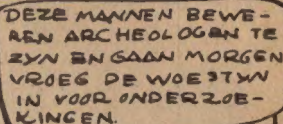 DEZE MANNEN BEWE-
REN ARCHEOLOGEN TE
ZYN EN GAAN MORGEN
VROEG DE WOESTYN
IN VOOR ONDERZOE-
KINGEN.